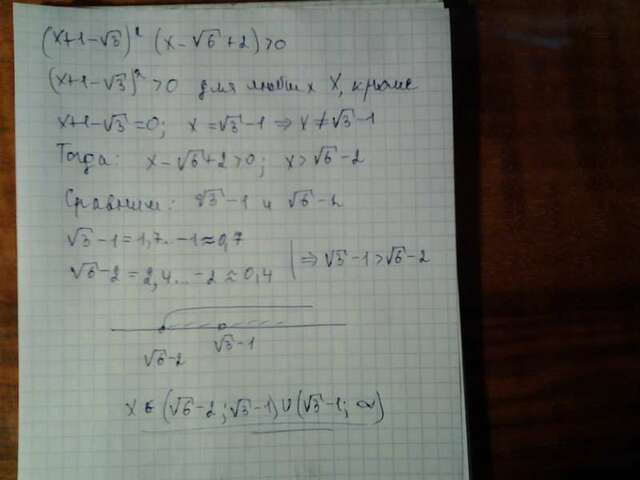 (x+1-√3)² (x-√6+2)>0
(x+1-√3)²>0 для любых X, кроме
x+1-√3=0; x=√3-1 ⇒ x≠√3-1
Тогда: x-√6+2>0; x>√6-2
Сравним: √3-1 и √6-2
√3-1=1,7..-1≈0,7
√6-2=2,4...-2≈0,4 | ⇒√3-1>√6-2
√6-2 √3-1
X∈(√6-2;√3-1)∪(√3-1; ∞)